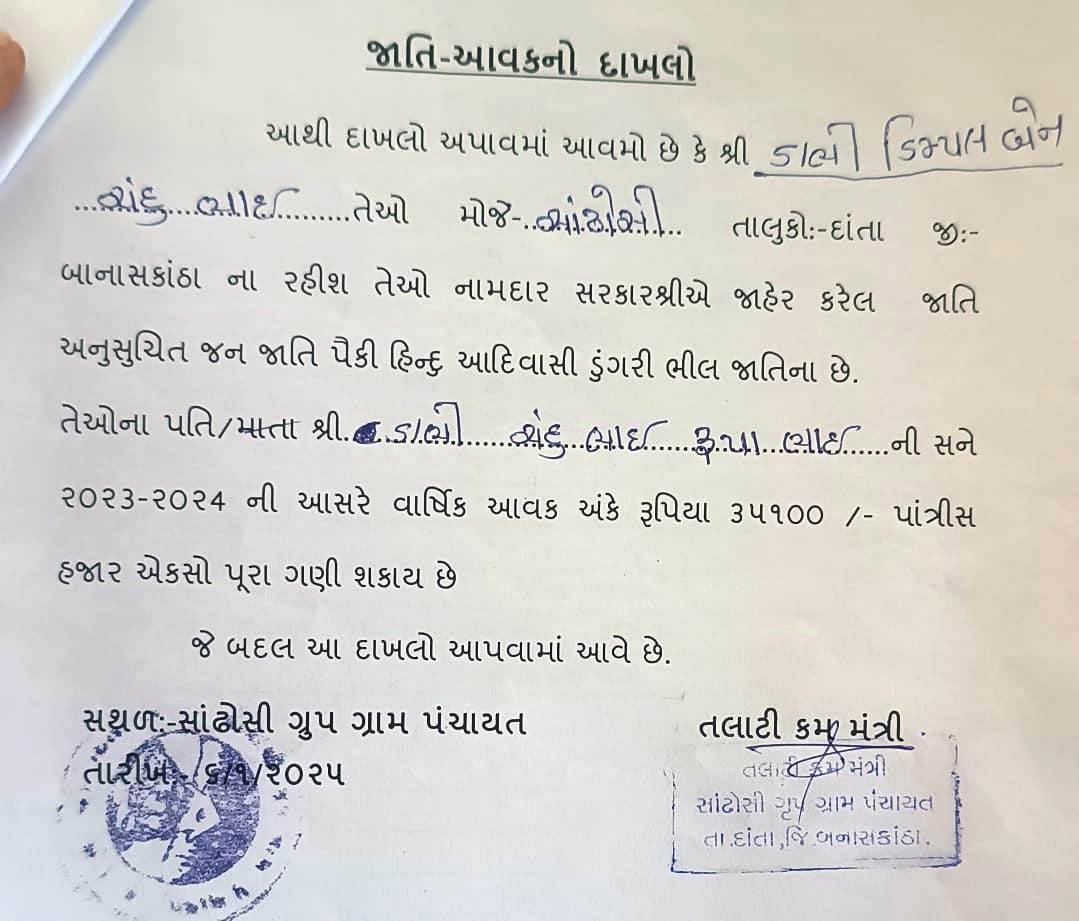 જાતિ-આવકનો દાખલો
આથી દાખલો અપાવમાં આવમો છે કે શ્રી ડાભી ડિમ્પલ બેન
...ચંદુ...ભાઈ.........તેઓ મોજે-..સાંઢોસી.. તાલુકોઃ-દાંતા જીઃ-
બાનાસકાંઠા ના રહીશ તેઓ નામદાર સરકારશ્રીએ જાહેર કરેલ જાતિ
અનુસુચિત જન જાતિ પૈકી હિન્દુ આદિવાસી ડુંગરી ભીલ જાતિના છે.
તેઓના પતિ/માતા શ્રી...ડાભી......ચંદુ..ભાઈ......રૂપા...ભાઈ......ની સને
૨૦૨૩-૨૦૨૪ ની આસરે વાર્ષિક આવક અંકે રૂપિયા ૩૫૧૦૦ /- પાંત્રીસ
હજાર એકસો પૂરા ગણી શકાય છે
જે બદલ આ દાખલો આપવામાં આવે છે.
સથળઃ-સાંઢોસી ગ્રુપ ગ્રામ પંચાયત
તારીખઃ-૬/૧/૨૦૨૫
તલાટી કમ મંત્રી
તલાટી કમ મંત્રી
સાંઢોસી ગૃપ ગ્રામ પંચાયત
તા.દાંતા,જિ.બનાસકાંઠા.